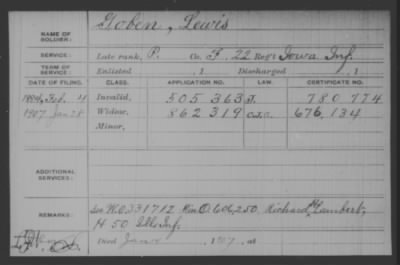 NAME OF SOLDIER: Goben, Lewis
SERVICE: Late rank, P. Co. F 22 Reg't Iowa Inf.
TERM OF SERVICE: Enlisted , 1 Discharged , 1
DATE OF FILING. CLASS. APPLICATION NO. LAW. CERTIFICATE NO.
Invalid, 505 363 J. 780 774
1907 Jan 28 Widow, 862 319 676,134
Minor,
ADDITIONAL SERVICES:
REMARKS: W.C. 331712 Min. O. 606,250. Richard H Lambert,
H 50 Ills Inf.
Died Jan , 1907, at